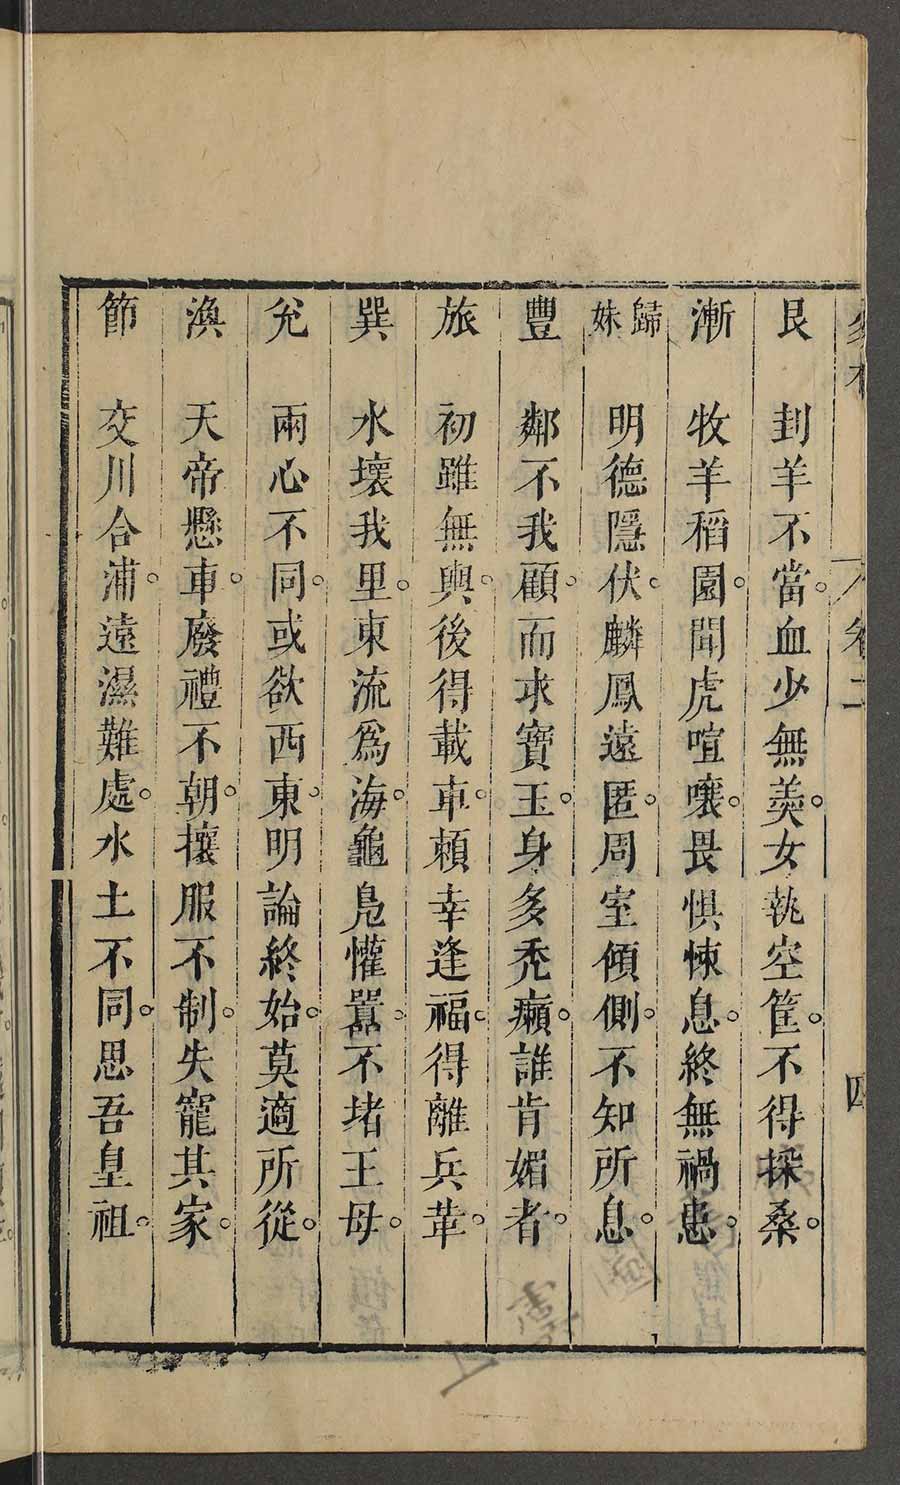 卷二
四
艮 刲羊不當。血少無羹。女執空筐。不得採桑。
漸 牧羊稻園。聞虎喧嚷。畏懼悚息。終無禍患。
歸妹 明德隱伏。麟鳳遠匿。周室傾側。不知所息。
豐 鄰不我顧。而求寶玉。身多禿癩。誰肯媚者。
旅 初雖無輿。後得載車。賴幸逢福。得離兵革。
巽 水壞我里。東流為海。龜鳧懽嚻。不堵王母。
兌 兩心不同。或欲西東。明論終始。莫適所從。
渙 天帝懸車。廢禮不朝。攘服不制。失寵其家。
節 交川合浦。遠濕難處。水土不同。思吾皇祖。